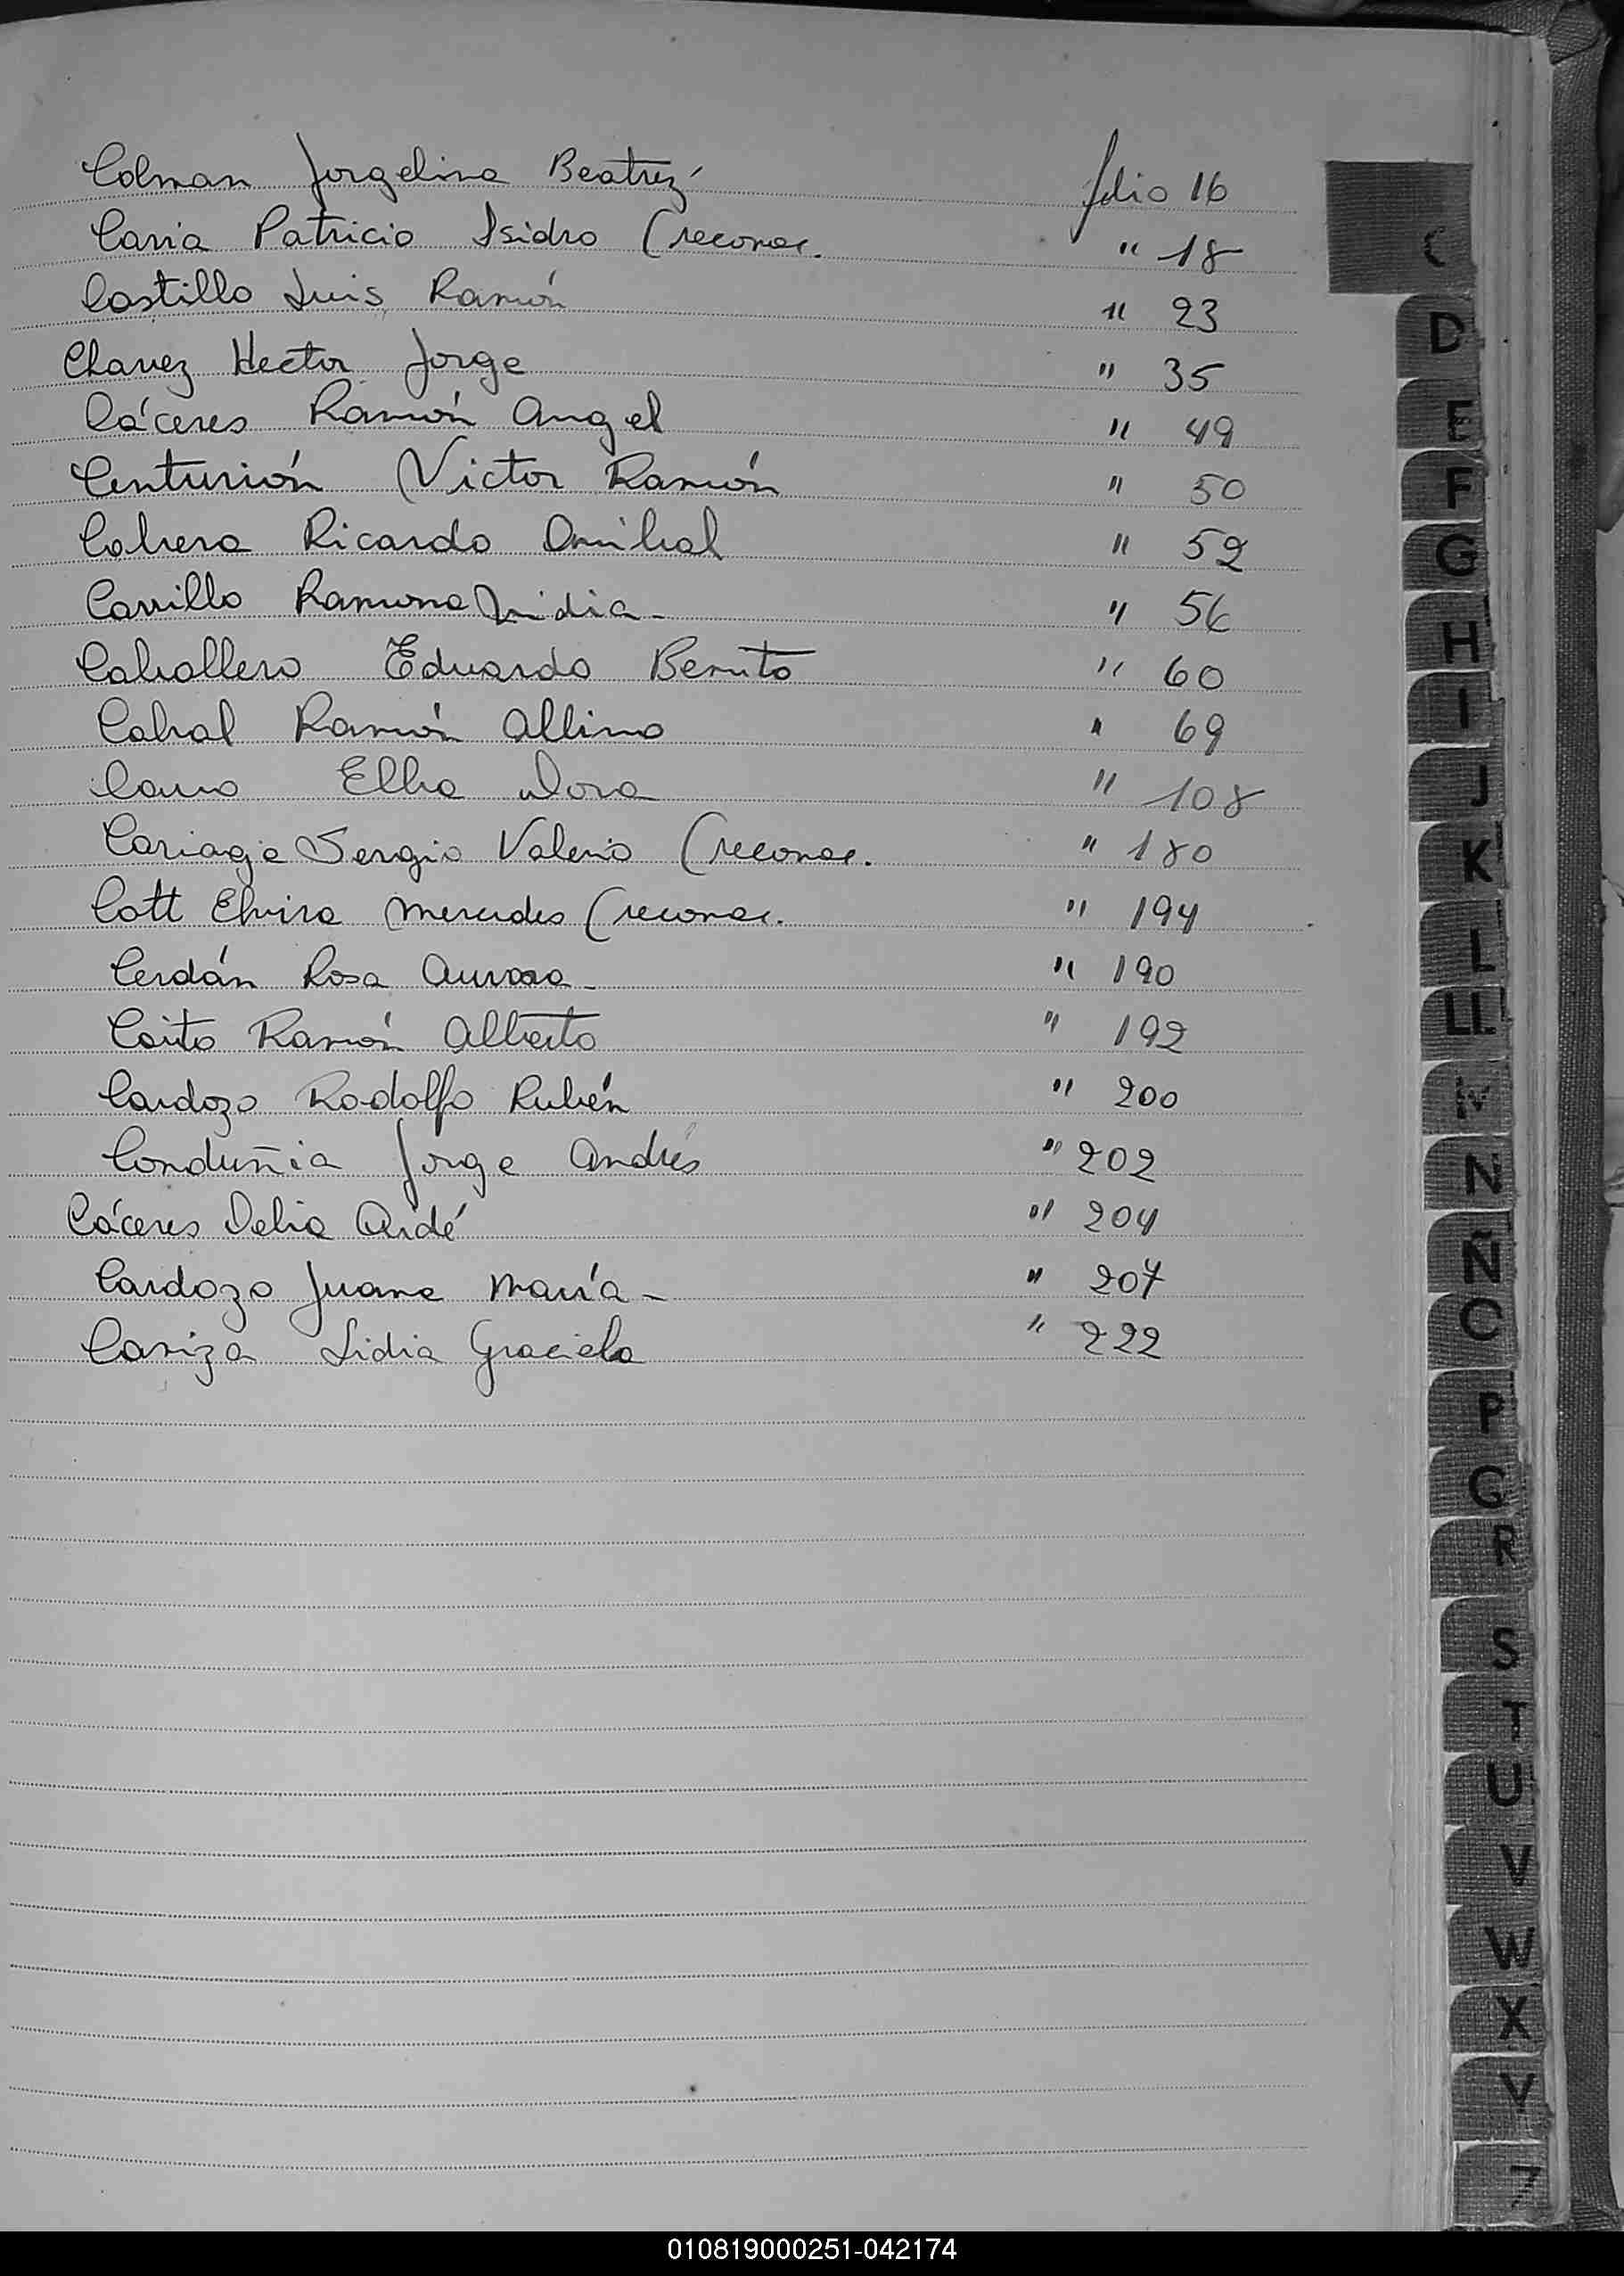 Colman Jorgelina Beatriz folio 16
Caria Patricio Isidro (reconoc. " 18
Castillo Luis Ramón " 23
Chavez Hector Jorge " 35
Cáceres Ramón Angel " 49
Centurión Victor Ramón " 50
Cabrera Ricardo Anibal " 52
Carrillo Ramona Nidia - " 56
Caballero Eduardo Benito " 60
Cabral Ramón Albino " 69
Cano Elba Dora " 108
Cariaga Sergio Valerio (reconoc. " 180
Cott Elvira Mercedes (reconoc. " 194
Cerdán Rosa Aurora - " 190
Coito Ramón Alberto " 192
Cardozo Rodolfo Rubén " 200
Jorge Andrés " 202
Cáceres Delia Aidé " 204
Cardozo Juana María - " 207
Cariza Lidia Graciela " 222
C
D
E
F
G
H
I
J
K
L
LL
M
N
Ñ
O
P
Q
R
S
T
U
V
W
X
Y
Z
010819000251-042174